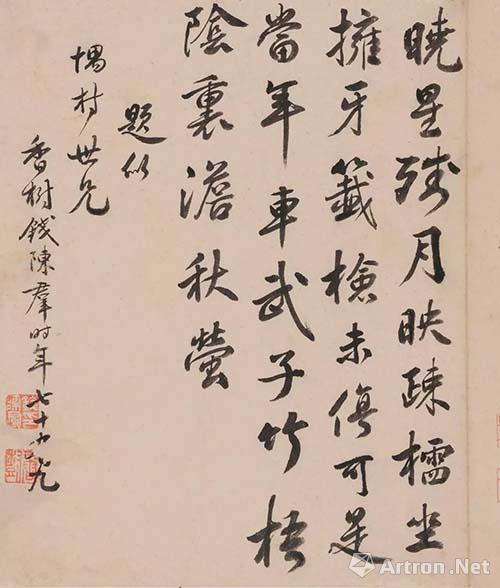 曉星殘月映疎櫺坐
擁牙籤檢未停可是
當年車武子竹梧
陰裏澹秋螢
題似
愓村世兄
香樹錢陳群時年七十有九
Artron.Net